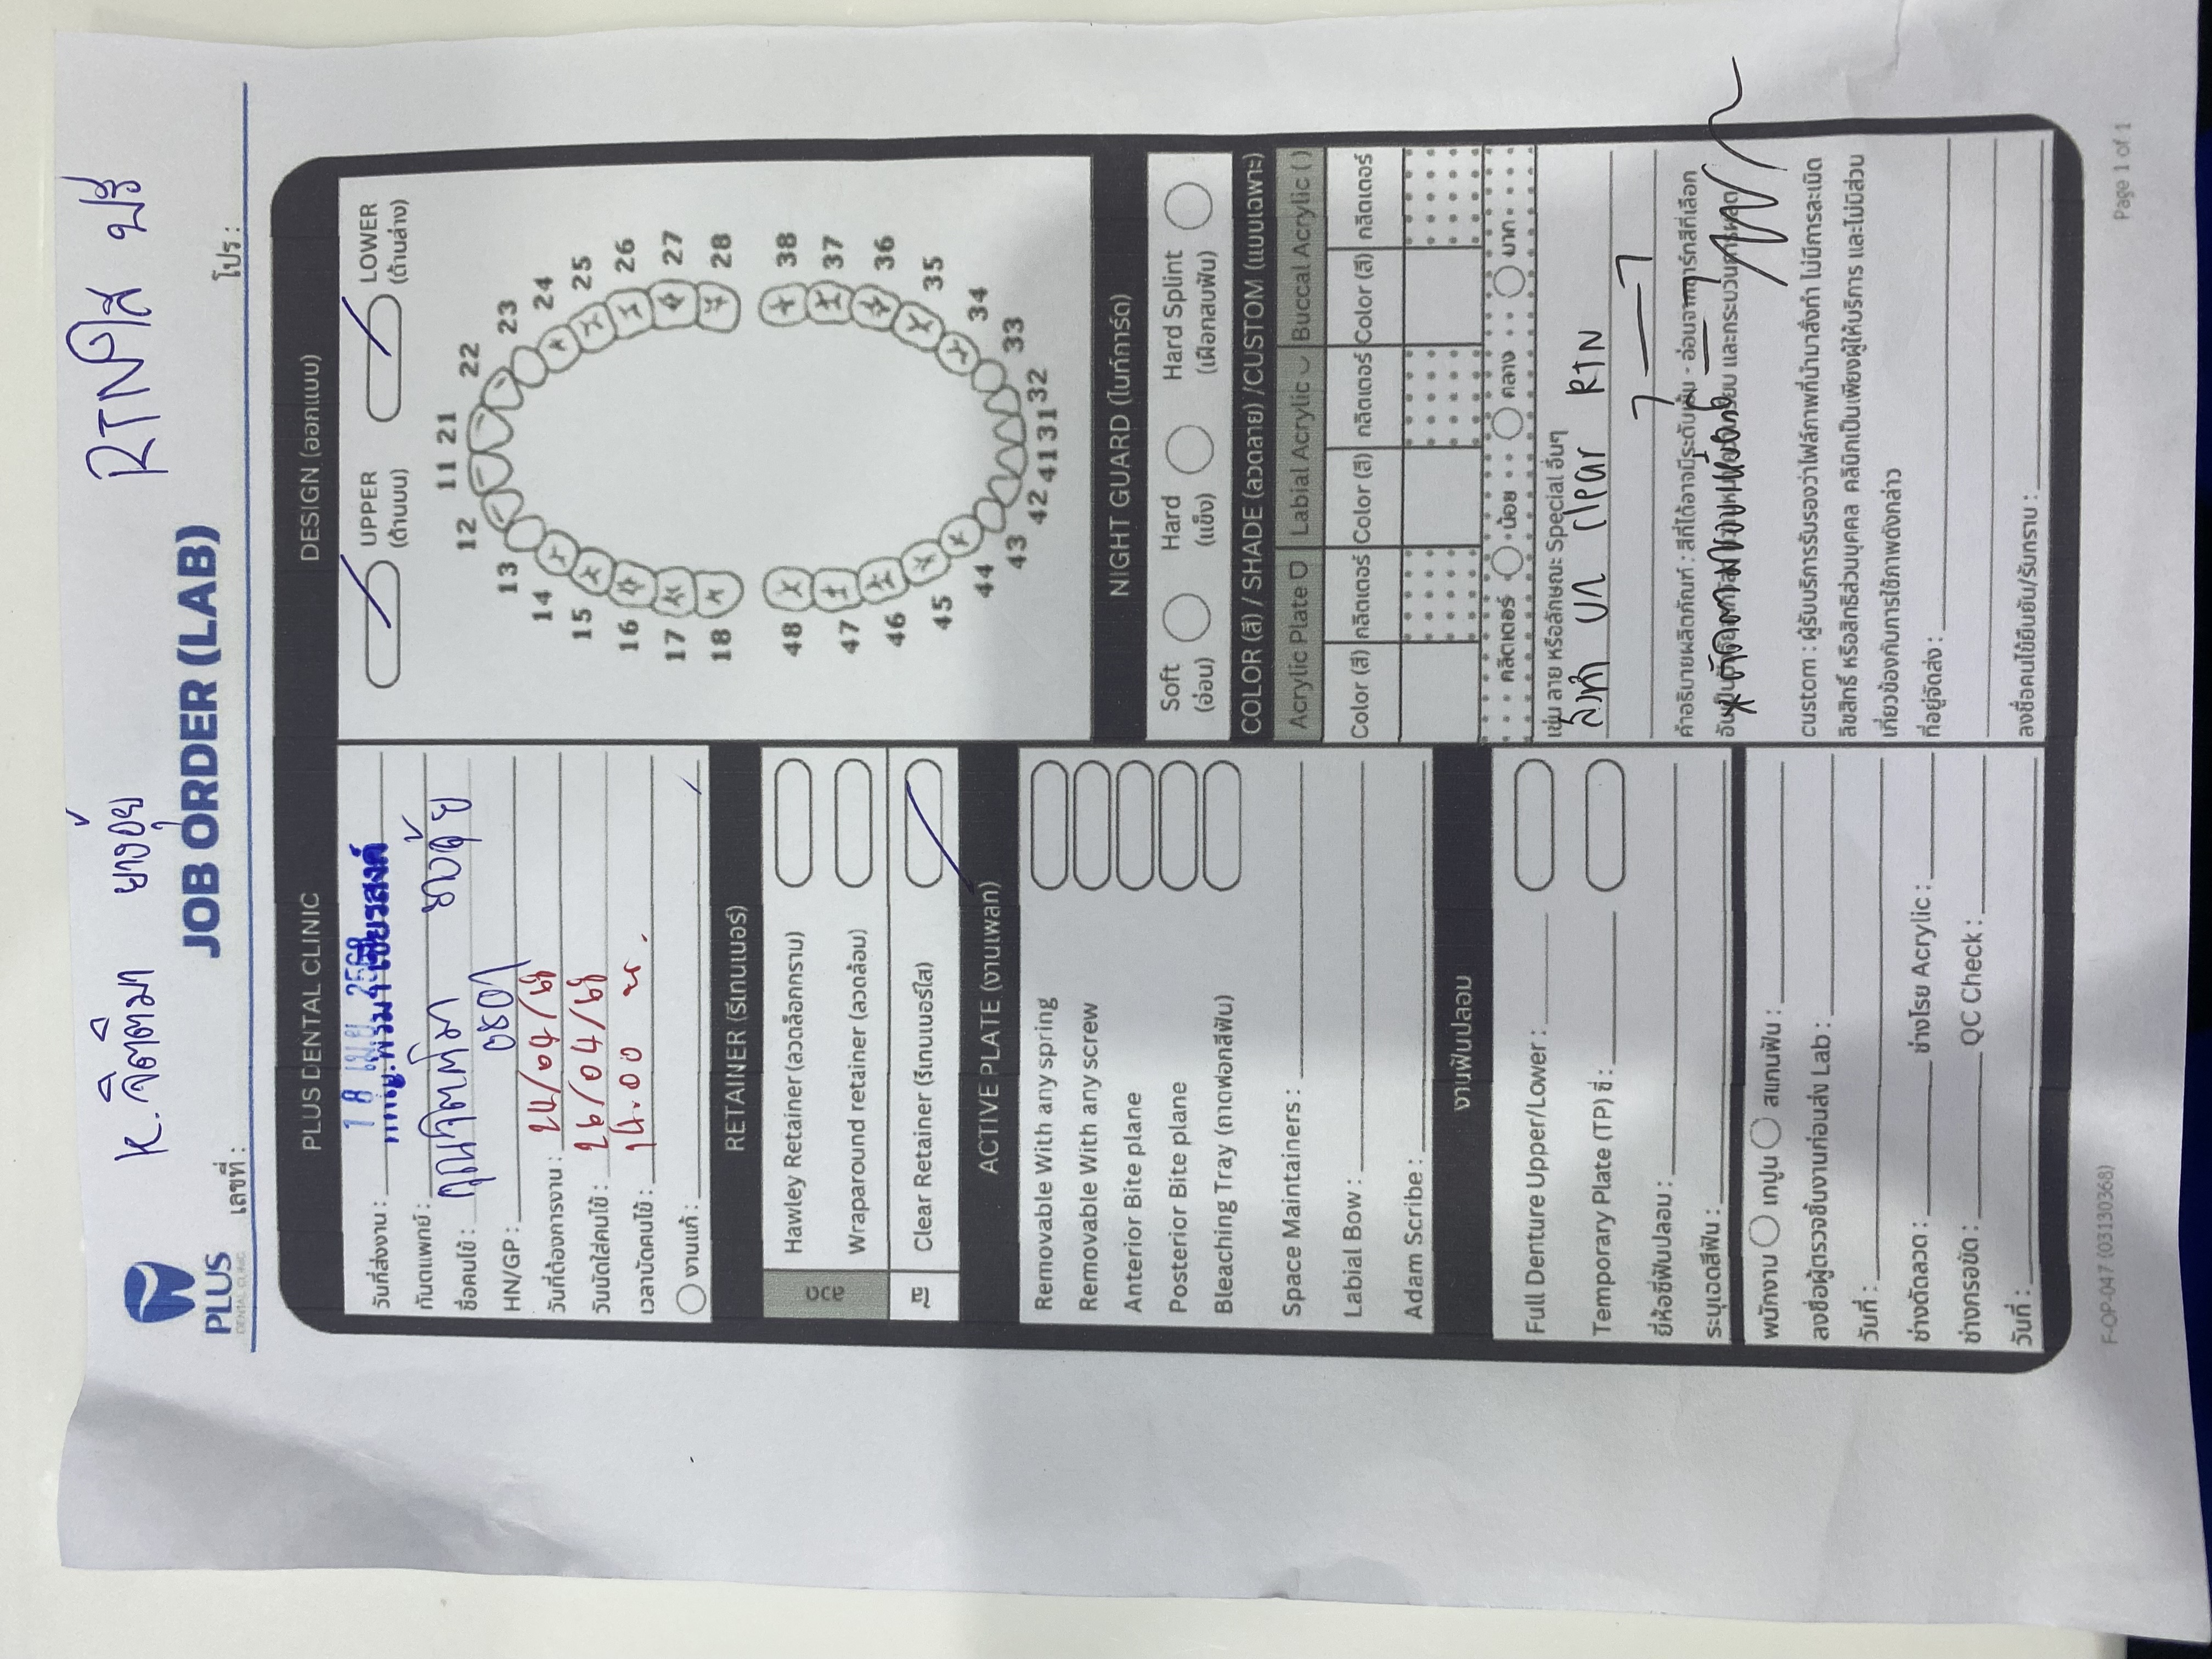 K. จิตติมา ยางอุ้ย
RTNใส ฟรี
PLUS
DENTAL CLINIC
JOB ORDER (LAB)
เลขที่ :
โปร :
PLUS DENTAL CLINIC
วันที่ส่งงาน : 18 เม.ย. 2568
ทันตแพทย์ : เชียรสงค์
ชื่อคนไข้ : คุณจิตติมา ยางอุ้ย
HN/GP : 0807
วันที่ต้องการงาน : 24/04/68
วันนัดใส่คนไข้ : 26/04/68
เวลานัดคนไข้ : 14.00 น.
งานแก้ :
RETAINER (รีเทนเนอร์)
ลวด
Hawley Retainer (ลวดล็อกกราม)
Wraparound retainer (ลวดล้อม)
ใส
Clear Retainer (รีเทนเนอร์ใส)
ACTIVE PLATE (งานเพลท)
Removable With any spring
Removable With any screw
Anterior Bite plane
Posterior Bite plane
Bleaching Tray (ถาดฟอกสีฟัน)
Space Maintainers :
Labial Bow :
Adam Scribe :
งานฟันปลอม
Full Denture Upper/Lower :
Temporary Plate (TP) ซี่ :
ยี่ห้อซี่ฟันปลอม :
ระบุเฉดสีฟัน :
พนักงาน เทปูน สแกนฟัน :
ลงชื่อผู้ตรวจชิ้นงานก่อนส่ง Lab :
วันที่ :
ช่างดัดลวด : ช่างโรย Acrylic :
ช่างกรอขัด : QC Check :
วันที่ :
DESIGN (ออกแบบ)
UPPER
(ด้านบน)
LOWER
(ด้านล่าง)
11 21
12 22
13 23
14 24
15 25
16 26
17 27
18 28
48 38
47 37
46 36
45 35
44 34
43 33
42 41 31 32
NIGHT GUARD (ไนท์การ์ด)
Soft
(อ่อน)
Hard
(แข็ง)
Hard Splint
(เฝือกสบฟัน)
COLOR (สี) / SHADE (ลวดลาย) /CUSTOM (แบบเฉพาะ)
Acrylic Plate Labial Acrylic Buccal Acrylic ( )
Color (สี) กลิตเตอร์ Color (สี) กลิตเตอร์ Color (สี) กลิตเตอร์
คลิตเตอร์ น้อย กลาง มาก
เช่น ลาย หรือลักษณะ Special อื่นๆ
สั่งทำ บล clear RTN
7 — 7
6 — 7
คำอธิบายผลิตภัณฑ์ : สีที่ได้อาจมีระดับเข้ม - อ่อนจากชาร์ทสีที่เลือก
และกระบวนการผลิต
* ตัดตามขอบเหงือก
custom : ผู้รับบริการรับรองว่าไฟล์ภาพที่นำมาสั่งทำ ไม่มีการละเมิด
ลิขสิทธิ์ หรือสิทธิส่วนบุคคล คลินิกเป็นเพียงผู้ให้บริการ และไม่มีส่วน
เกี่ยวข้องกับการใช้ภาพดังกล่าว
ที่อยู่จัดส่ง :
ลงชื่อคนไข้ยืนยัน/รับทราบ :
F-OP-047 (03130368)
Page 1 of 1